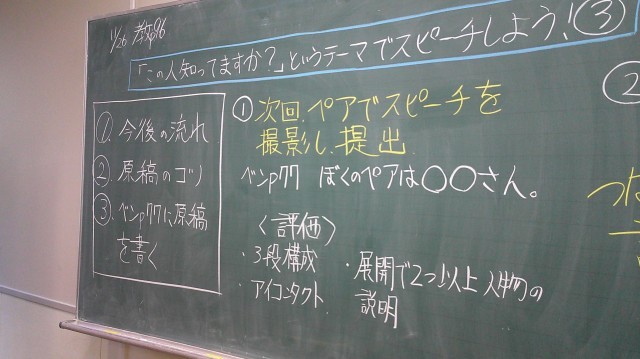 11/26 教p96
「この人知ってますか?」というテーマでスピーチしよう!③
① 今後の流れ
② 原稿のコツ
③ ベンp77に原稿
を書く
① 次回、ペアでスピーチを
撮影し、提出
ベンp77 ぼくのペアは〇〇さん。
〈評価〉
・3段構成
・アイコンタクト
・展開で2つ以上人物の
説明
②
つ